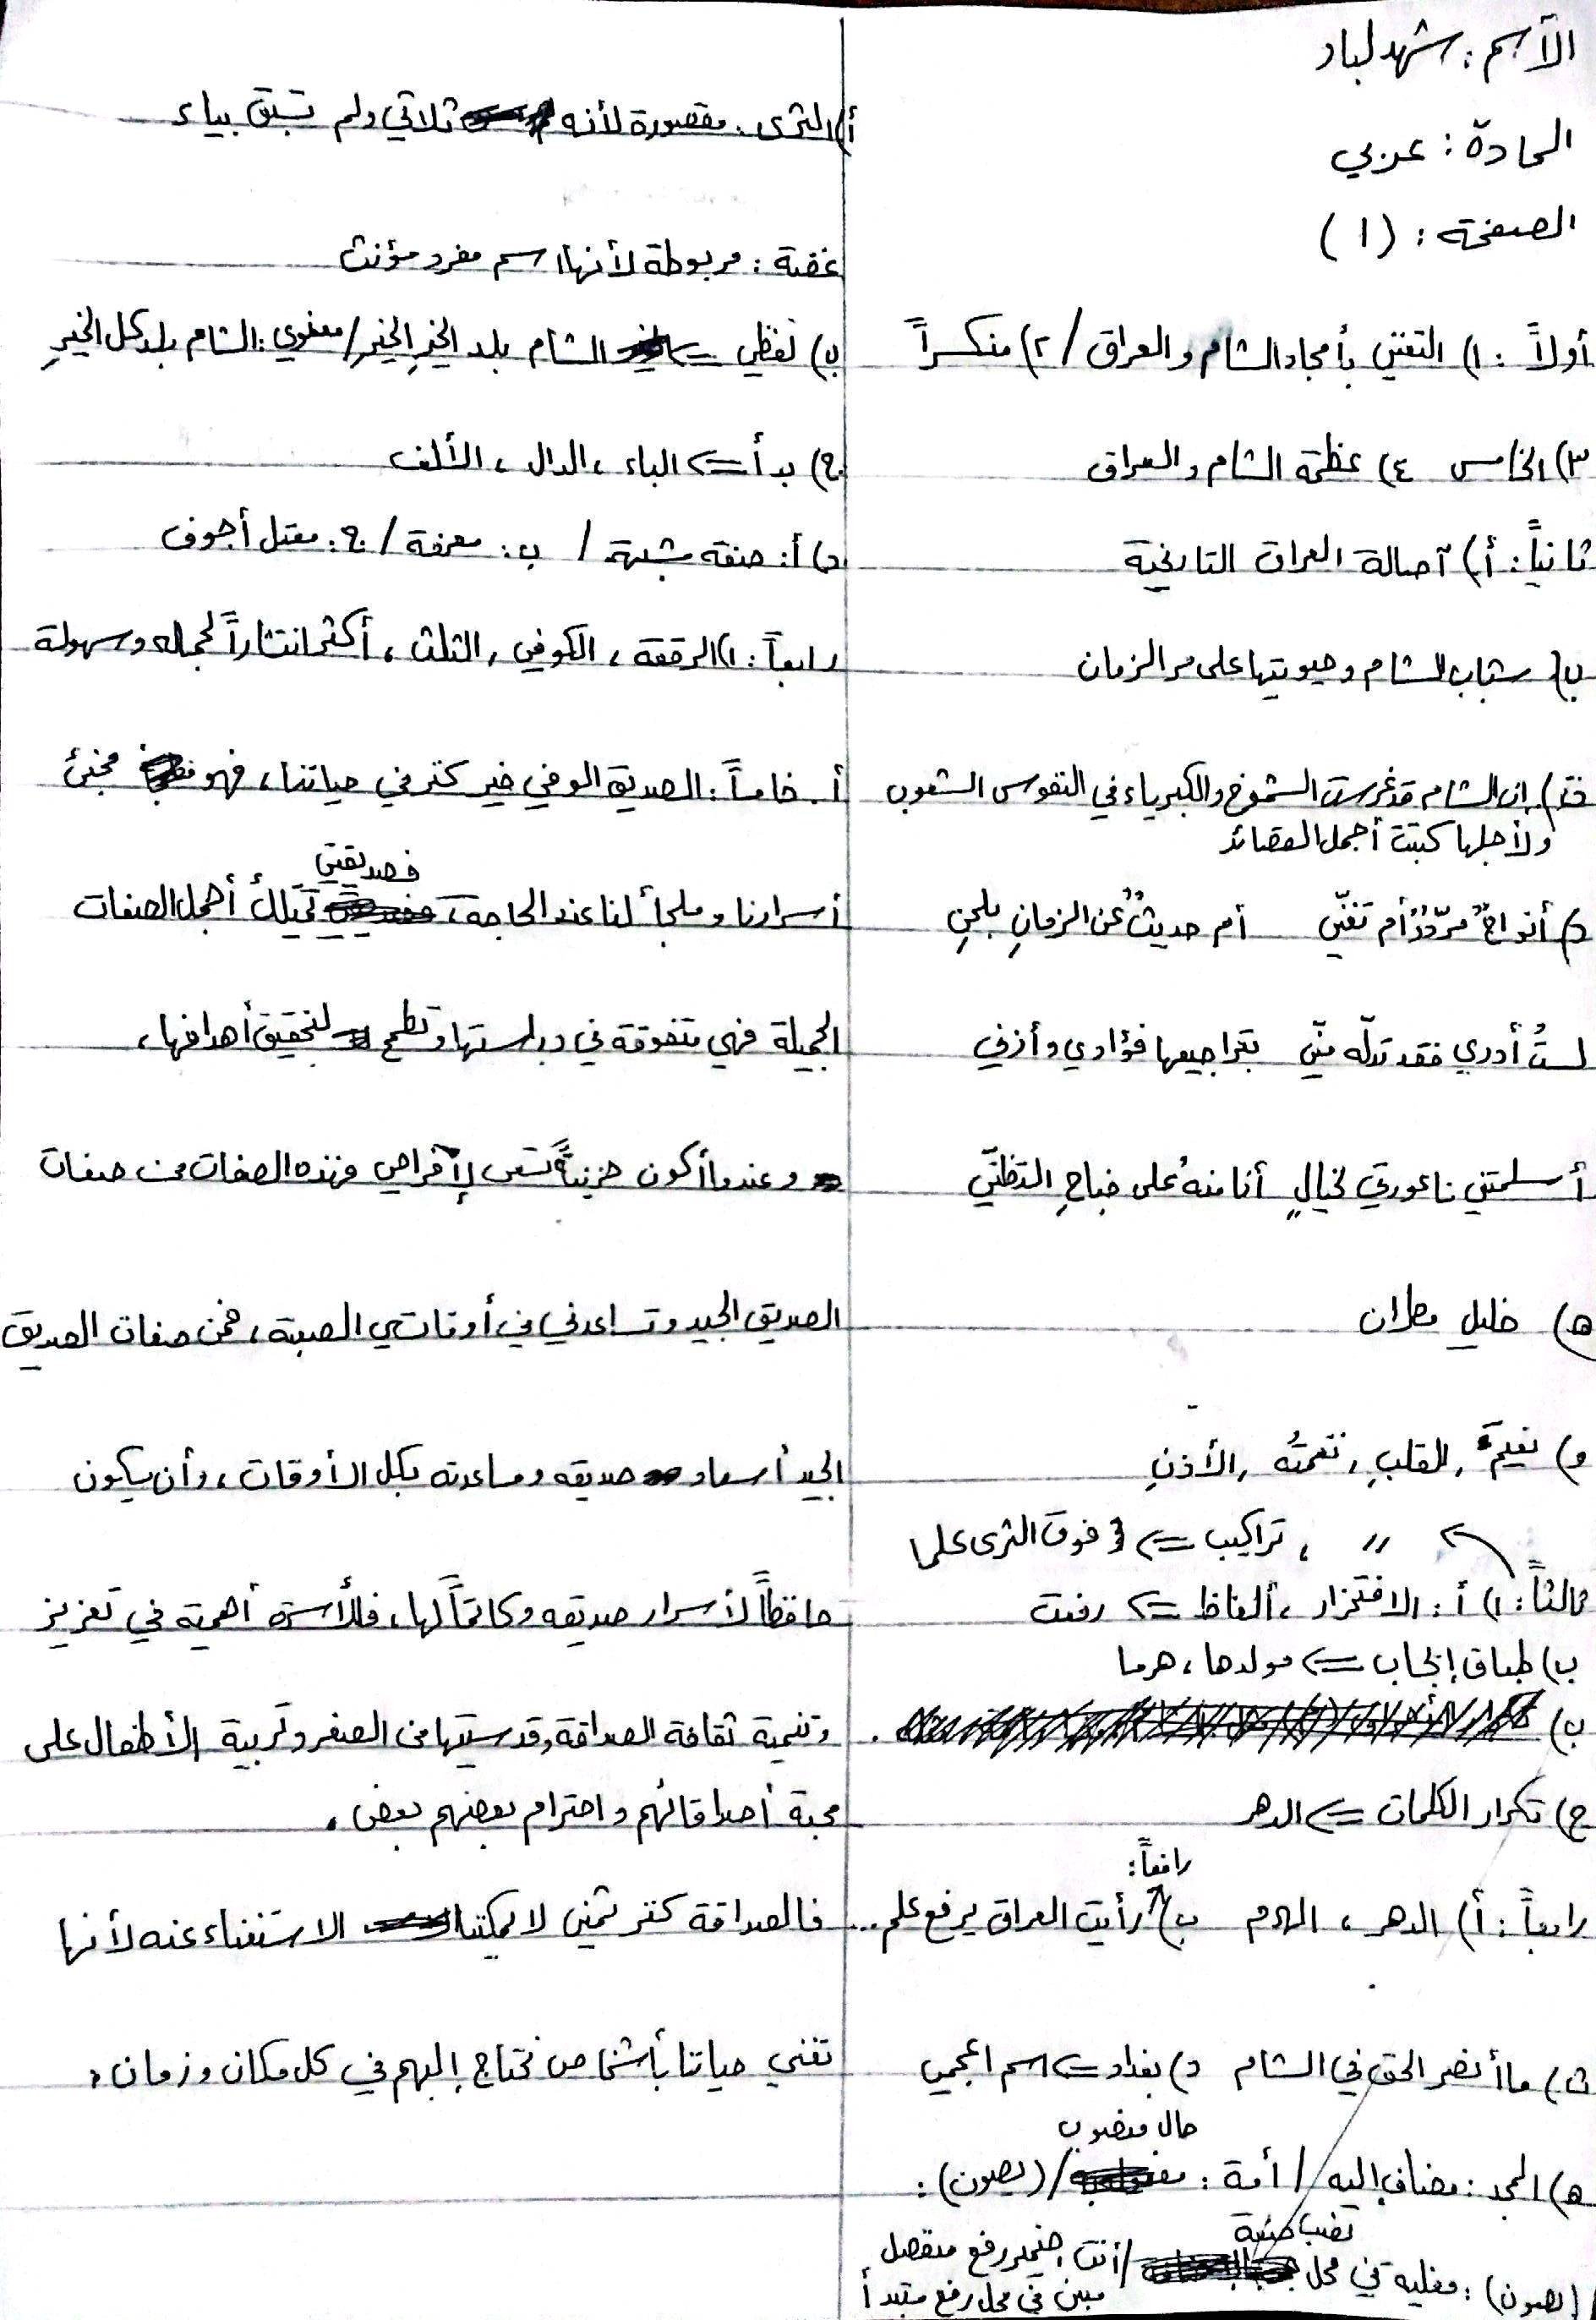 الآسم : شهد لباد
المادة : عربي
الصفحة : (١)
أولاً : ١) التغني بأمجاد الشام و العراق / ٢) منكسراً
٣) الخامس ٤) عظمة الشام و العراق
ثانياً : أ) آصالة العراق التاريخية
ب) شباب الشام وحيويتها على مر الزمان
إن الشام قد غرست الشموخ والكبرياء في النفوس الشعوب
ولأجلها كتبت أجمل القصائد
د) أنواحٌ مردّدٌ أم تغنّي أم حديثٌ عن الزمانِ بلحنِ
لستُ أدري فقد تدلّه منّي بتراجيعها فؤادي وأذني
أسلمتني ناعورتي لخيالٍ أنا منهُ على جناحِ التظنّي
ه) خليل مطران
و) نعيمَ , القلبِ , نعمتُه , الأذنِ
〃 ، تراكيب <= فوق الثرى علما
ثالثاً : ١) أ : الافتخار ، ألفاظ <= رفعت
ب) طباق إيجاب <= مولدها ، هرما
ب)
ج) تكرار الكلمات <= الدهر
رافعاً :
رابعاً : أ) الدهر ، الهرم ب) رأيت العراق يرفع علم ...
ت) ما أنضر الحق في الشام د) بغداد <= اسم اعجمي
حال منصوب
ه) المجد : مضاف إليه / أمة : / (يصون) :
نصب صفة
(يصون) : فعلية في محل / أنت : ضمير رفع منفصل
مبني في محل رفع مبتدأ
أ) الثرى : مقصورة لأنه ثلاثي ولم تسبق بياء
عفية : مربوطة لأنها اسم مفرد مؤنث
ب) لفظي <= الشام بلد الخيرِ الخيرِ / معنوي : الشام بلد كل الخيرِ
ج) بدأ <= الباء ، الدال ، الألف
د) أ : صفة مشبهة / ب : معرفة / ج : معتل أجوف
رابعاً : ١) الرقعة ، الكوفي , الثلث ، أكثر انتشاراً لجماله وسهولة
أ . خامساً : الصديق الوفي خير كنز في حياتنا ، فهو مخبئ
فصديقتي
أسرارنا وملجأ لنا عند الحاجة ، تملك أجمل الصفات
الجميلة فهي متفوقة في دراستها وتطمح لتحقيق أهدافها ،
وعندما أكون حزينةً تسعى لإفراحي فهذه الصفات من صفات
الصديق الجيد وتساعدني في أوقاتي الصعبة ، فمن صفات الصديق
الجيد أسعاد صديقه ومساعدته بكل الأوقات ، وأن يكون
حافظاً لأسرار صديقه وكاتماً لها ، فللأسرة أهمية في تعزيز
وتنمية ثقافة الصداقة وقدسيتها من الصغر وتربية الأطفال على
محبة أصدقائهم واحترام بعضهم بعض .
فالصداقة كنز ثمين لا يمكننا الاستغناء عنه لأنها
تغني حياتنا بأشخاص نحتاج إليهم في كل مكان وزمان .